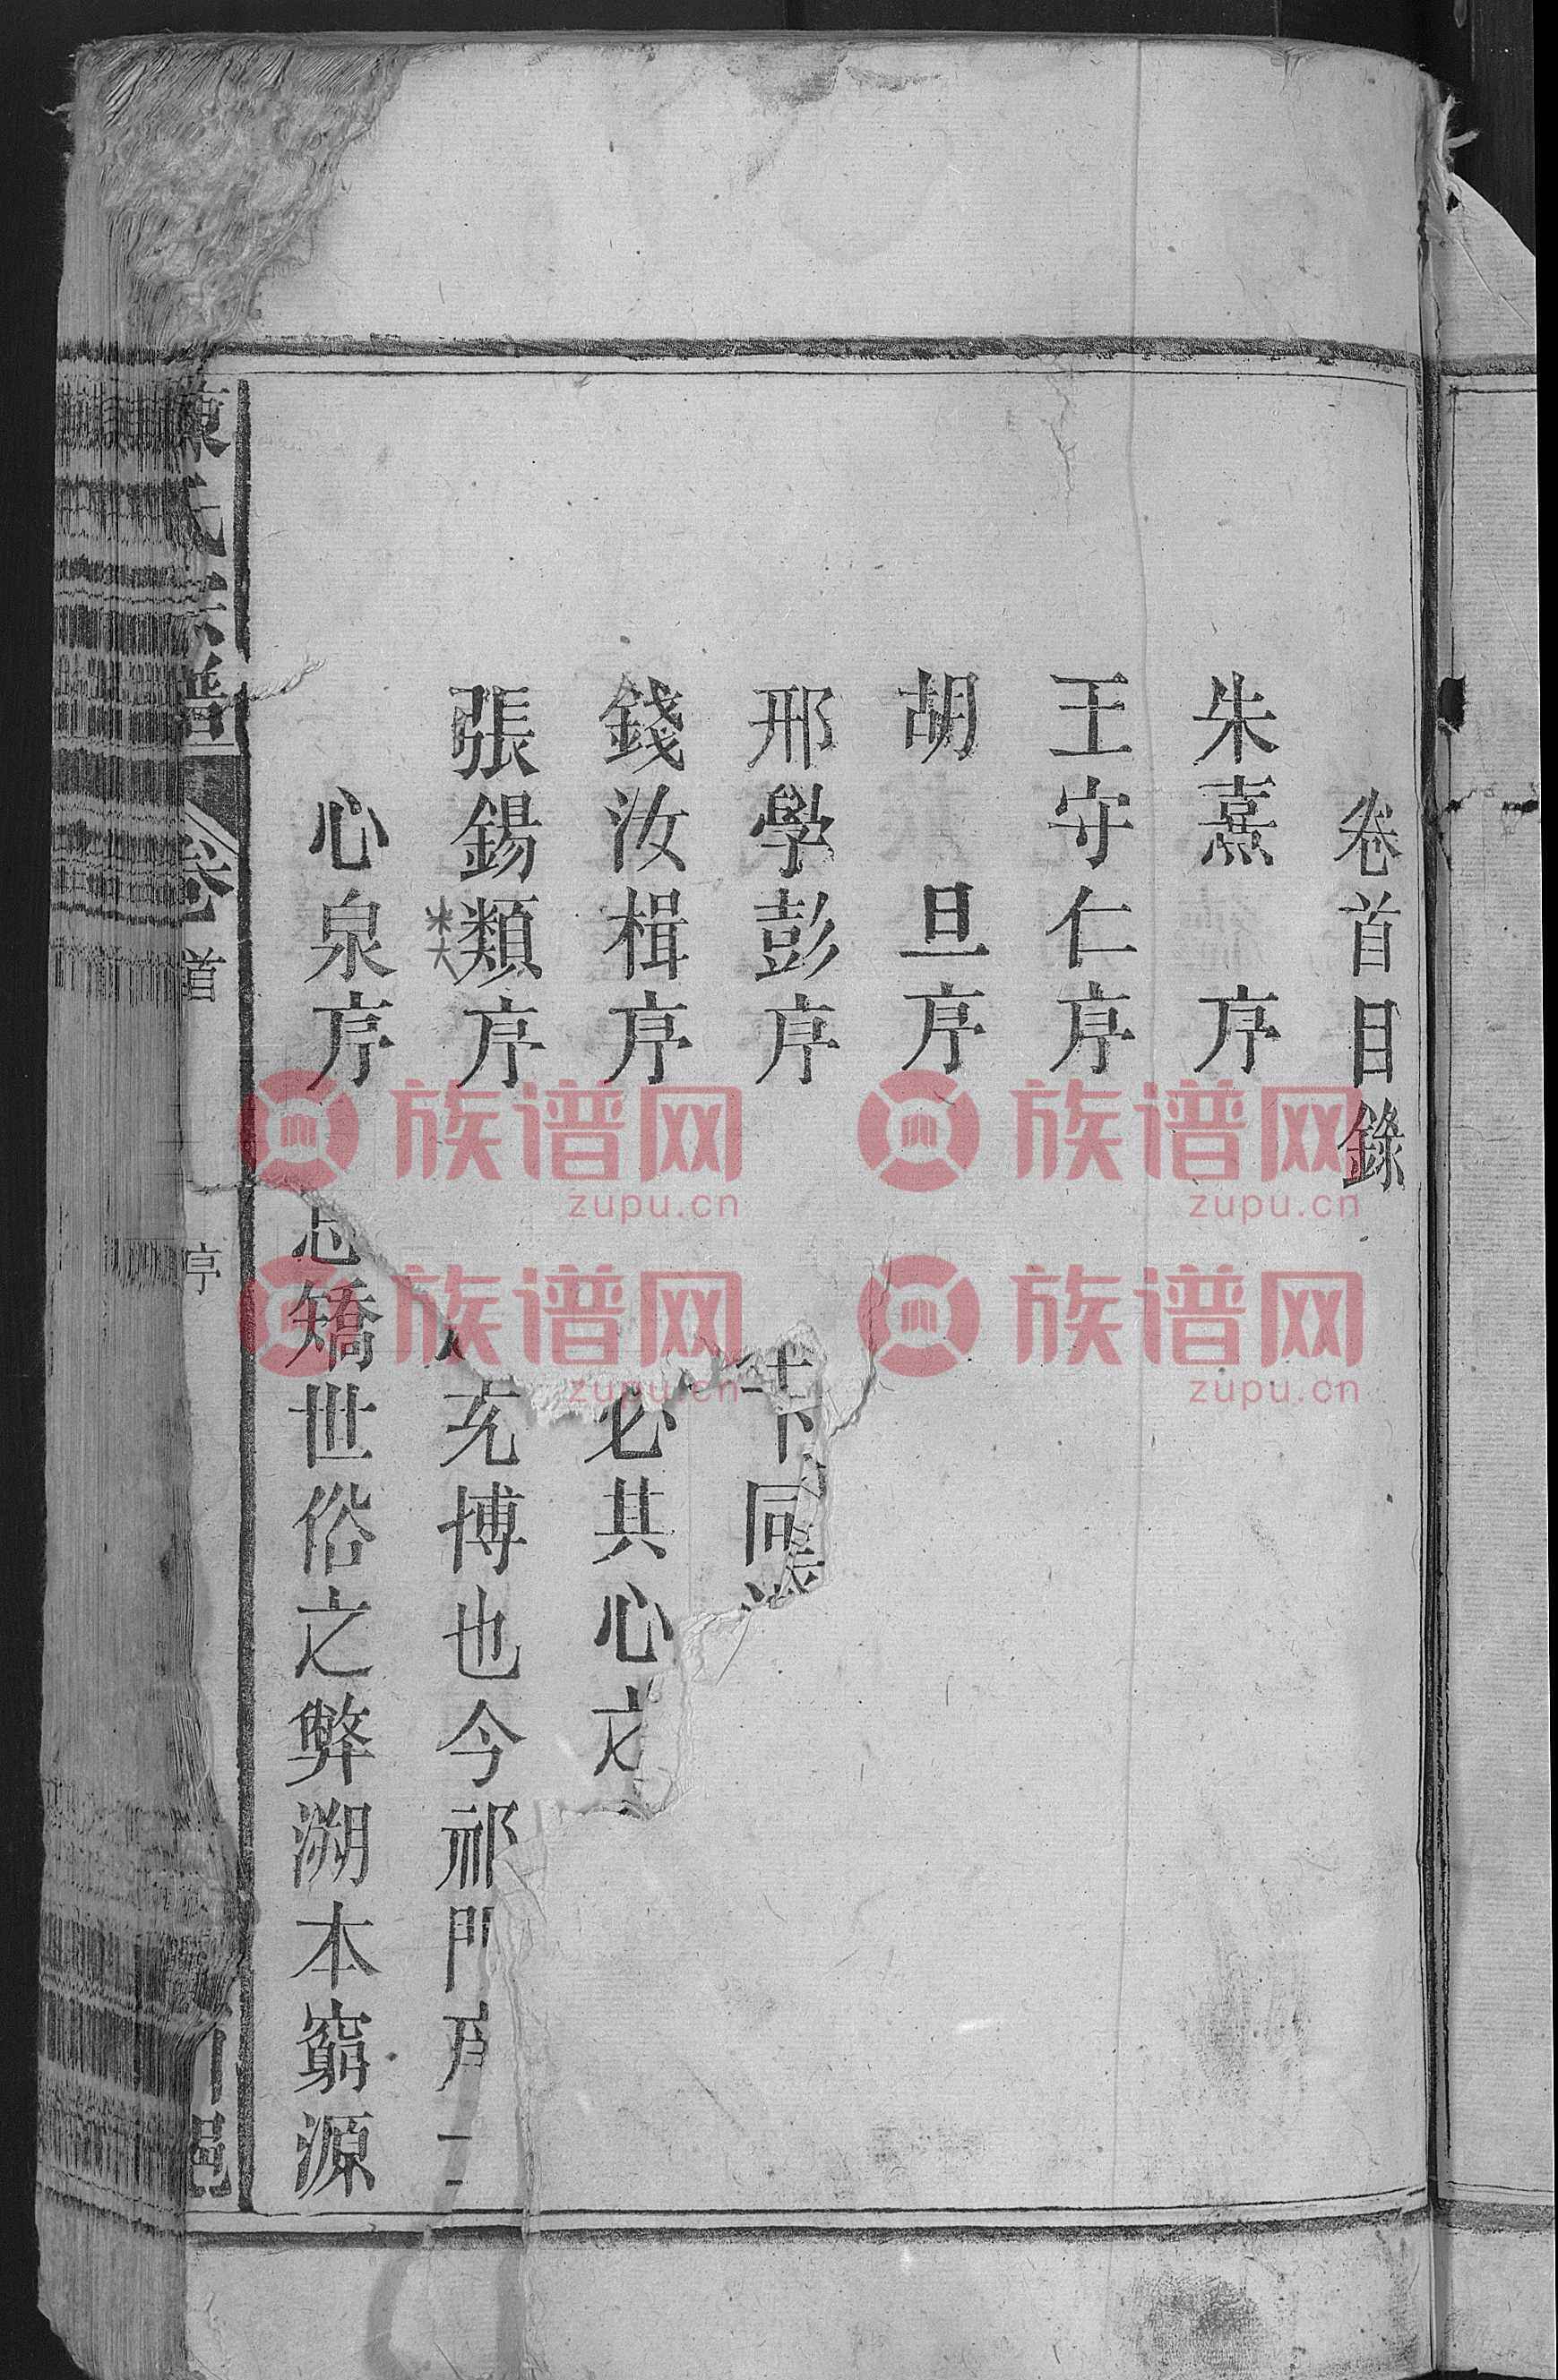 卷首目錄
朱熹 序
王守仁序
胡 旦序
邢學彭序
錢汝楫序
張錫類序
心泉序
同
必其心
充博也今祁門
矯世俗之弊溯本窮源
陳氏宗譜 卷首 序
族谱网 zupu.cn
族谱网 zupu.cn
族谱网 zupu.cn
族谱网 zupu.cn